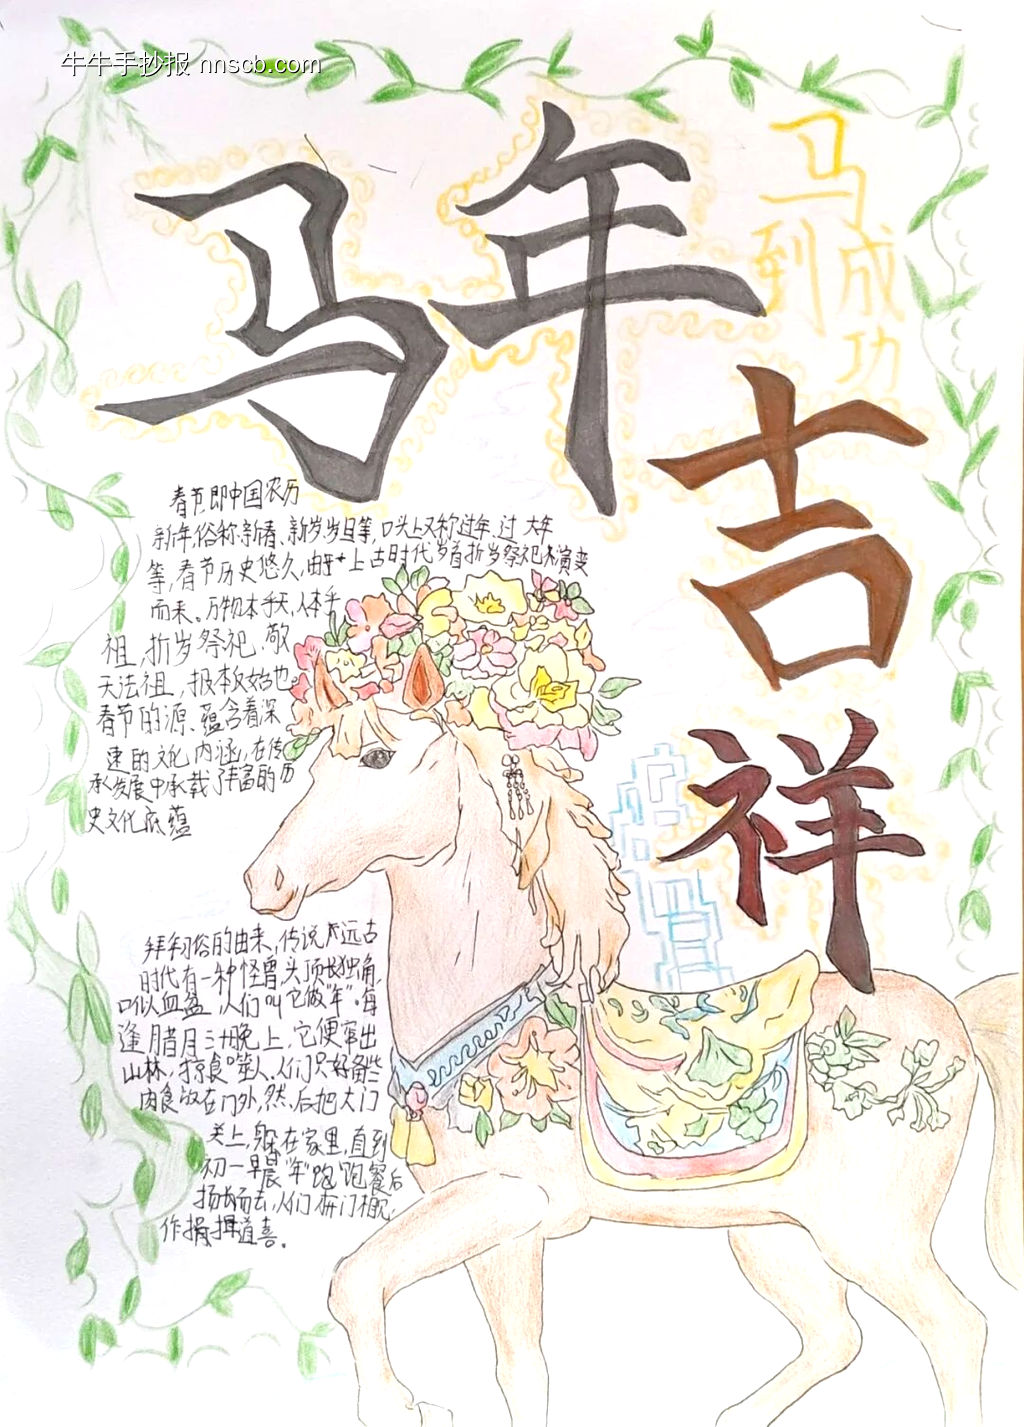 牛牛手抄报 nnscb.com
马年
吉祥
马到
成功
春节即中国农历
新年,俗称新春、新岁、岁旦等,口头上又称过年、过大年
等,春节历史悠久,由上古时代岁首祈岁祭祀演变
而来。万物本乎天,人本乎
祖,祈岁祭祀、敬
天法祖,报本反始也。
春节的源、蕴含着深
邃的文化内涵,在传
承发展中承载了丰富的历
史文化底蕴
拜年习俗的由来,传说远古
时代有一种怪兽,头顶长独角,
口似血盆,人们叫它做“年”。每
逢腊月三十晚上,它便窜出
山林,掠食噬人,人们只好备些
肉食放在门外,然后把大门
关上,躲在家里,直到
初一早晨“年”饱餐后
扬长而去,人们开门
作揖道喜。